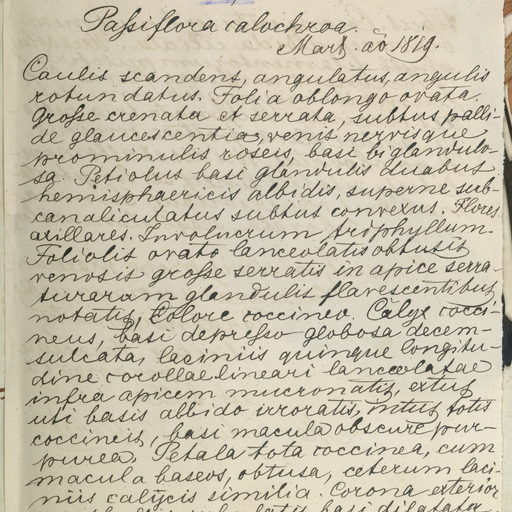 Passiflora calochroa.
Mart. ao 1819.
Caulis scandens, angulatus, angulis
rotundatus. Folia oblongo ovata.
Grosse crenata et serrata, subtus palli-
de glaucescentia, venis nervisque
prominulis roseis, basi biglandulo-
sa. Petiolus basi glandulis duabus
hemisphaericis albidis, superne sub-
canaliculatus subtus convexus. Flores
axillares. Involucrum triphyllum.
Foliolis ovato lanceolatis obtusis
venosis grosse serratis in apice serra-
turarum glandulis flavescentibus
notatis, colore coccineo. Calyx cocci-
neus, basi depresso globosa decem-
sulcata, laciniis quinque longitu-
dine corollae lineari lanceolatae
infra apicem mucronatis, extus
uti basis albido irroratis, intus totis
coccineis, basi macula obscure pur-
purea. Petala tota coccinea, cum
macula baseos, obtusa, ceterum laci-
niis calycis similia. Corona exterior
basi dilatator